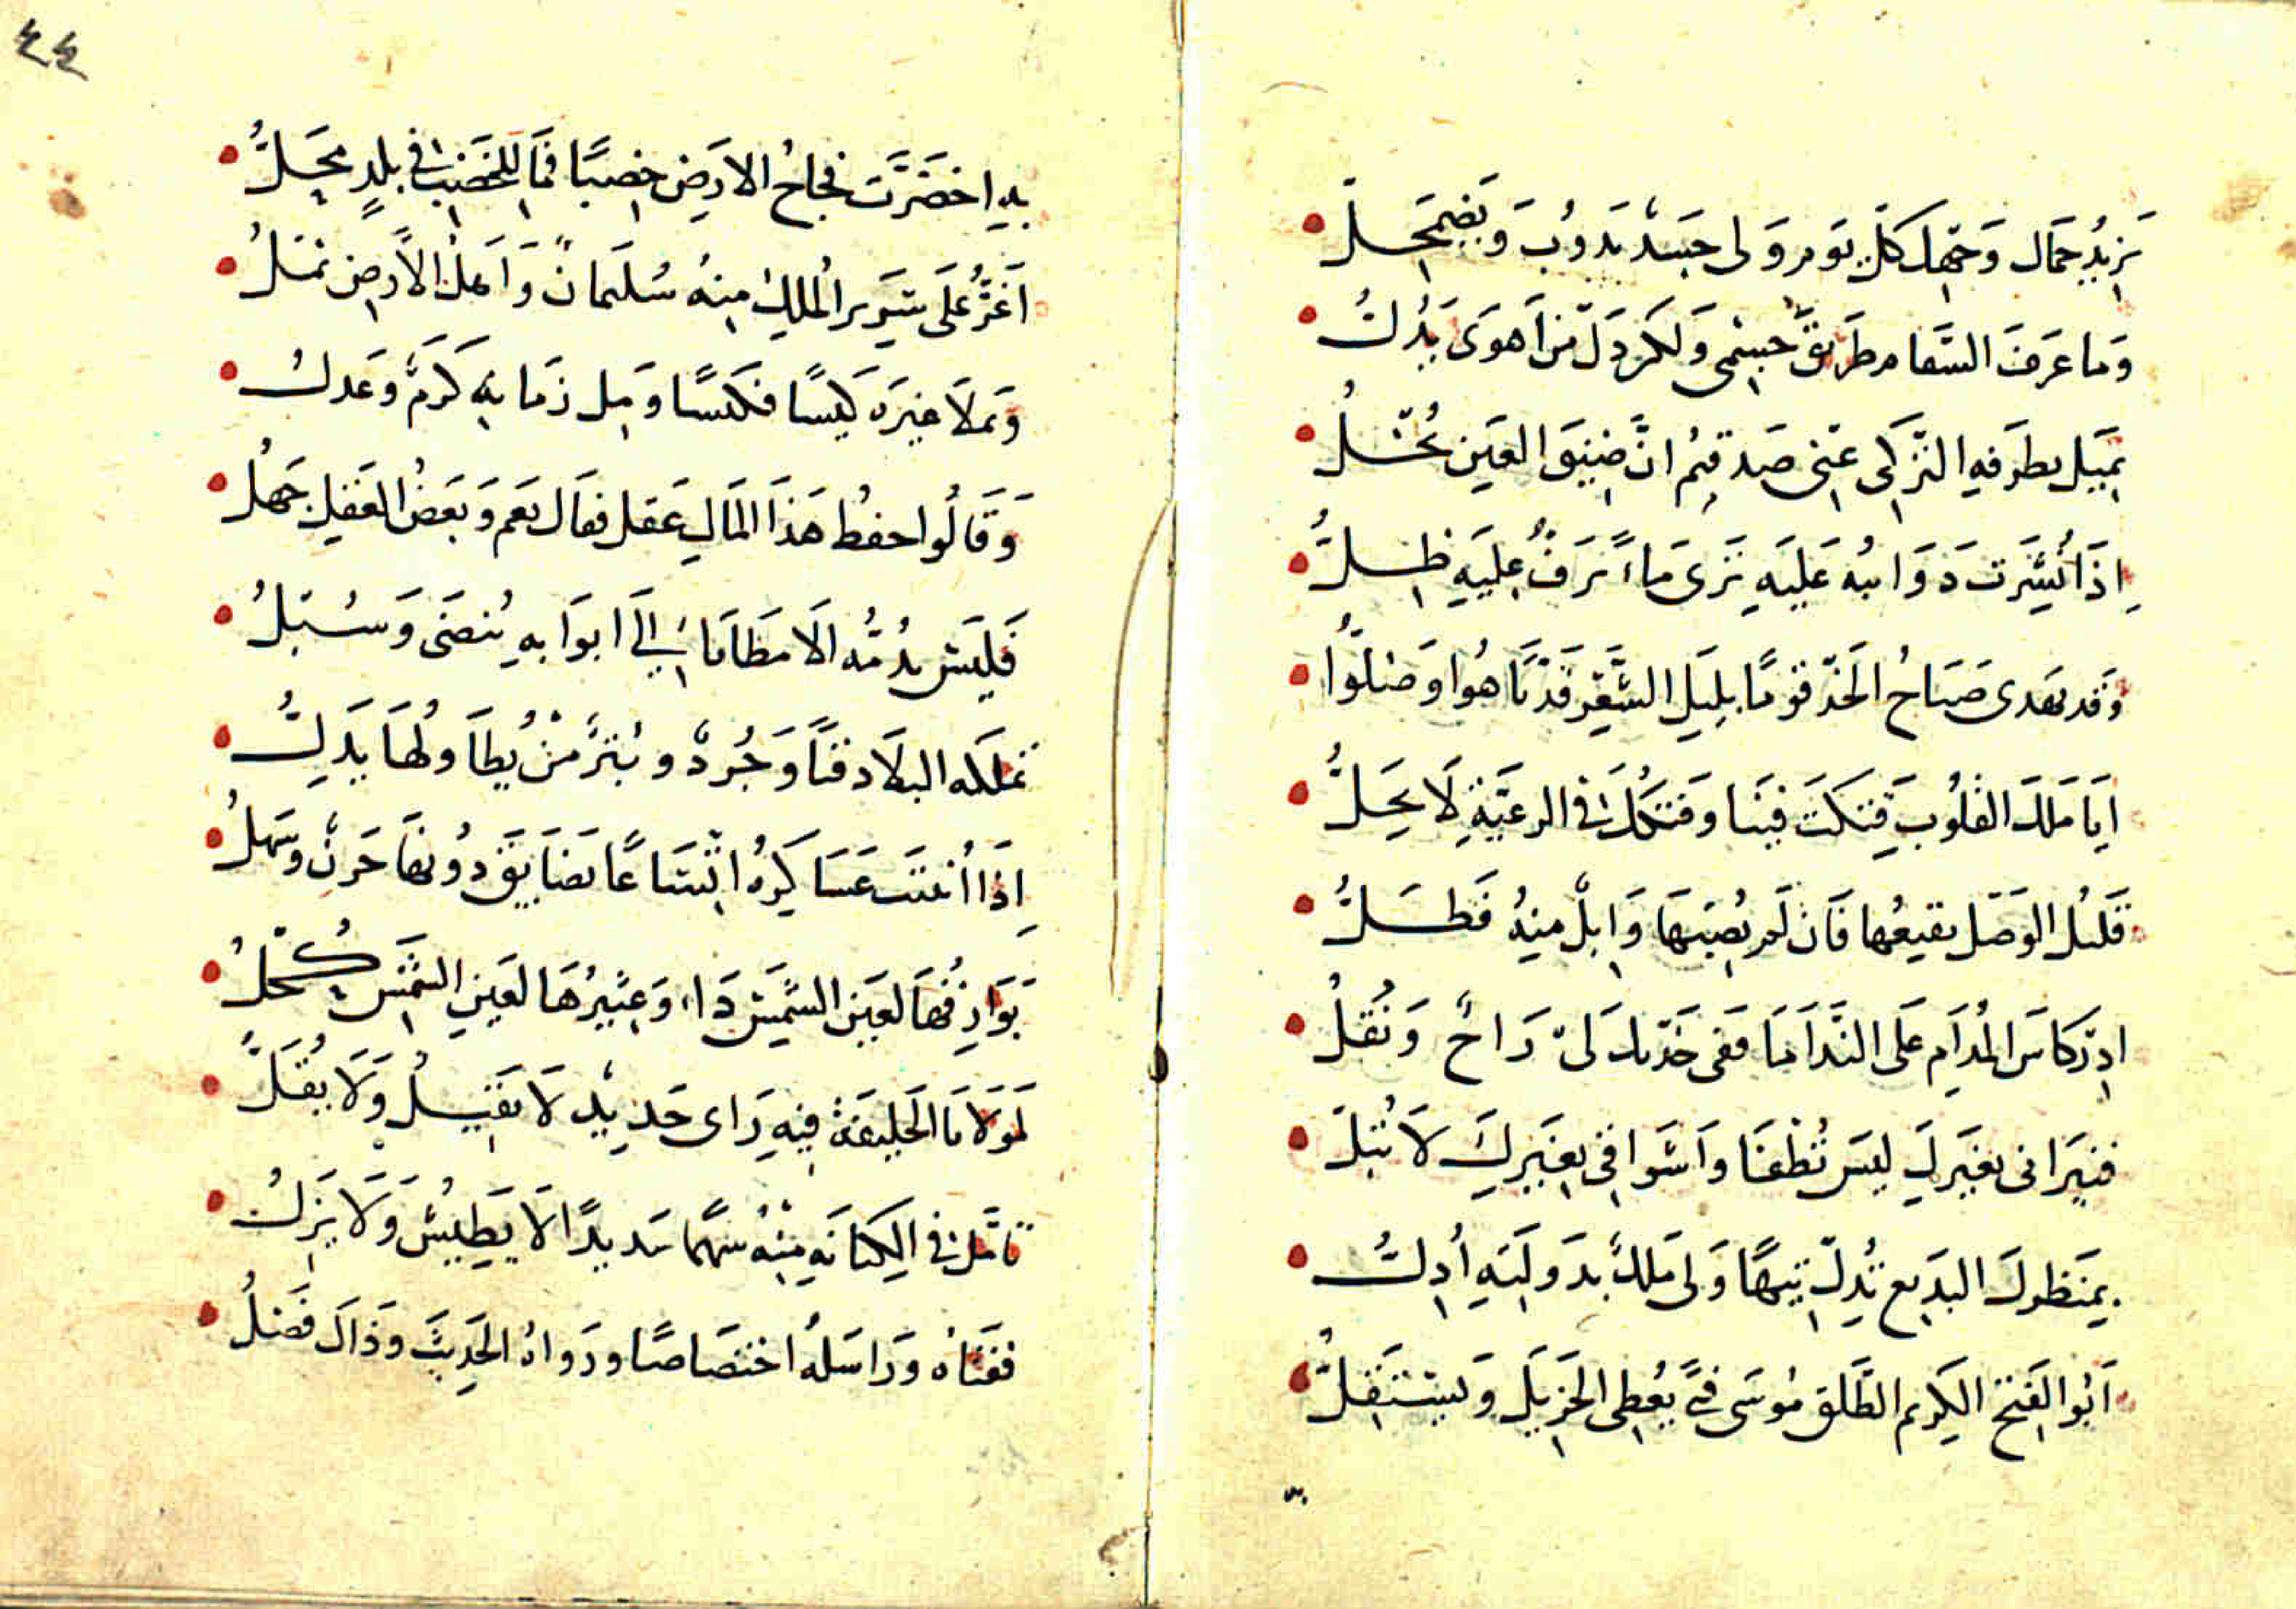 يَزِيدُ جَمَال وَجهِك كلّ يَوم وَلى جَسَدٌ يَذوُبُ وَيَضمَحِلّ
وَما عَرَفَ السَّقام طَرِيقَ جِسمى وَلكن دَلّ مَن اَهوَى يَدُلُّ
يَمِيل بطَرفهِ التّركى عَنّى صَدقتمُ انَّ ضِيقَ العَين بُخلُ
اِذَا نُشِرَت ذَوَائبه عَلَيهِ تَرَى مَاءً تَرِفُّ عَلَيهِ ظِلُّ
وَقد يَهدى صَبَاحُ الخَدّ قومًا بِلَيلِ الشَّعرِ قَد تَاهُوا وَضلُّوا
ايَا مَلكَ القلُوبِ فتكتَ فِينَا وَفتكُكَ فى الرعيّةِ لَا يَحِلُّ
قليل الوَصل يقنعُها فَان لَم يُصِبهَا وَابِلٌ مِنهُ فَطَلُّ
اَدِر كاسَ المُدَامِ عَلى النَّدَامَا ففى خَدّيك لى رَاحٌ وَنُقلُ
فنِيرَانى بغَيركِ ليسَ تُطْفَا وَاَشواقى بِغَيرِكَ لَا تُبَلُّ
بِمَنظركَ البَدِيع تُدِلّ تيهًا وَلى مَلكٌ بدَولَتهِ اُدِلُّ
اَبُو الفَتح الكرِيم الطَّلق مُوسَى فتًى يُعطِى الجَزِيلَ وَيَستَقِلُّ
بهِ اخضَرَّت فجَاجُ الارَضِ خِصبًا فمَا للخِصبِ فى بلدٍ مَحَلُّ
اَغَرُّ عَلَى سَرِير المُلكِ مِنهُ سُلَيمَانٌ وَاَهلُ الاَرضِ نملُ
وَمَلا غيرَه كَيسًا فكَيسًا وَمِل زمَا بهِ كرَمٌ وَعَدلُ
وَقَالُوا حفظُ هَذَا المَالِ عَقل فقَال نعَم وَبَعَضُ العَقلِ جَهلُ
فَلَيسَ يذُمُّه الَا مَطَايَا اِلى اَبوَابهِ تُنضَى وَسُبلُ
تملكه البلَاد قنًا وَجُردٌ وَبُترٌ مَنْ يُطَاولُهَا يَذِلُّ
اِذَا اُفنَت عَسَاكِرهُ اتّسَاعًا تضَايَقَ دُونهَا حَزنٌ وسَهلُ
بَوَارِقهَا لعَين الشَّمسِ دَاءٌ وَعِثيرُهَا لعَينِ الشَّمسِ كُحْلُ
لمَولَانَا الخَلِيفَة فيهِ رَاى حَدِيدٌ لَا يَفِيلُ وَلَا يُفَلُّ
تَاَمَّل فى الكِنَانَهِ مِنْهُ سَهمًا سَدِيدًا لَا يَطِيشُ وَلَا يَزِلُّ
ففتاهُ وَرَاسَلهُ اختصَاصًا وَرَواهُ الحَدِيثَ وَذَاكَ فَضلُ
٤٤